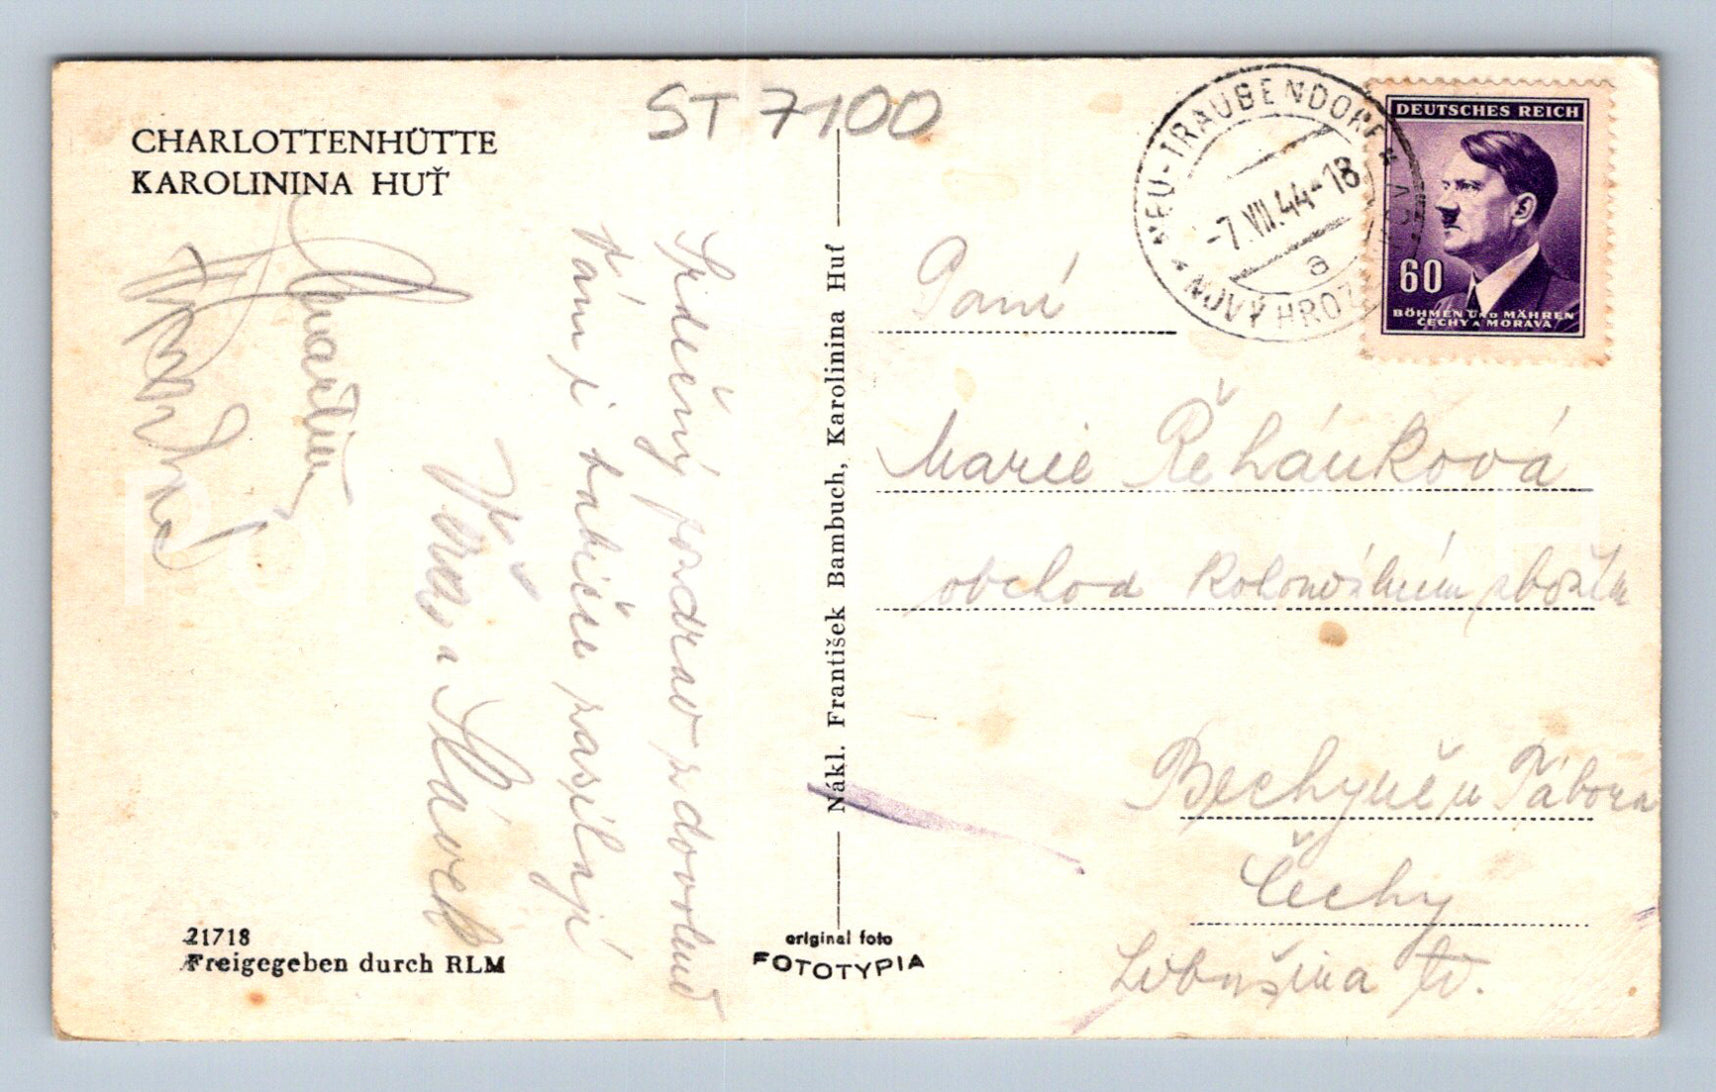 ST 7100
CHARLOTTENHÜTTE
KAROLININA HUŤ
Srdečný pozdrav z dovolené
Vám i babičce zasílají
Věra a Slávek
21718
Freigegeben durch RLM
Nákl. František Bambuch, Karolinina Huť
original foto
FOTOTYPIA
NEU-TRAUBENDORF
-7.VII.44-18
a
NOVÝ HROZ
DEUTSCHES REICH
60
BÖHMEN UND MÄHREN
ČECHY A MORAVA
Paní
Marie Řehánková
obchod koloniálním zbožím
Bechyně u Tábora
Čechy
Libušina tř.